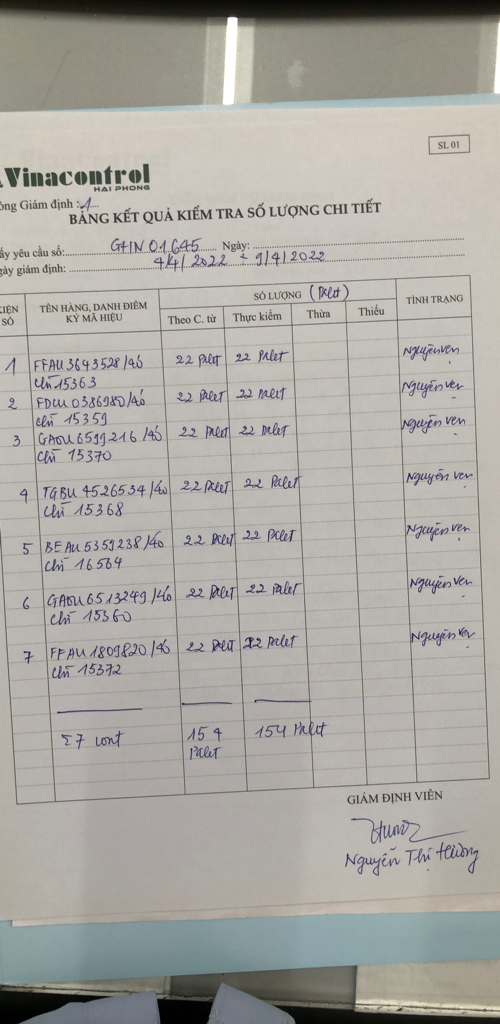 SL 01
Vinacontrol
HAI PHONG
òng Giám định :1
BẢNG KẾT QUẢ KIỂM TRA SỐ LƯỢNG CHI TIẾT
ấy yêu cầu số: G41N 01645 Ngày:
gày giám định: 4/4/2022 ÷ 9/4/2022
KIỆN SỐ TÊN HÀNG, DANH ĐIỂM KÝ MÃ HIỆU SỐ LƯỢNG (Palet) TÌNH TRẠNG
Theo C. từ Thực kiểm Thừa Thiếu
1 FFAU 3643528/40 22 Palet 22 Palet Nguyên vẹn
chì 15363
2 FDCU 0386980/40 22 Palet 22 Palet Nguyên vẹn
chì 15359
3 GAOU 6599216/40 22 Palet 22 Palet Nguyên vẹn
chì 15370
4 TGBU 4526534/40 22 Palet 22 Palet Nguyên vẹn
chì 15368
5 BEAU 5359238/40 22 Palet 22 Palet Nguyên vẹn
chì 16564
6 GAOU 6513249/40 22 Palet 22 Palet Nguyên vẹn
chì 15360
7 FFAU 1809820/40 22 Palet 22 Palet Nguyên vẹn
chì 15372
Σ7 cont 154 Palet 154 Palet
GIÁM ĐỊNH VIÊN
Nguyễn Thị Hường